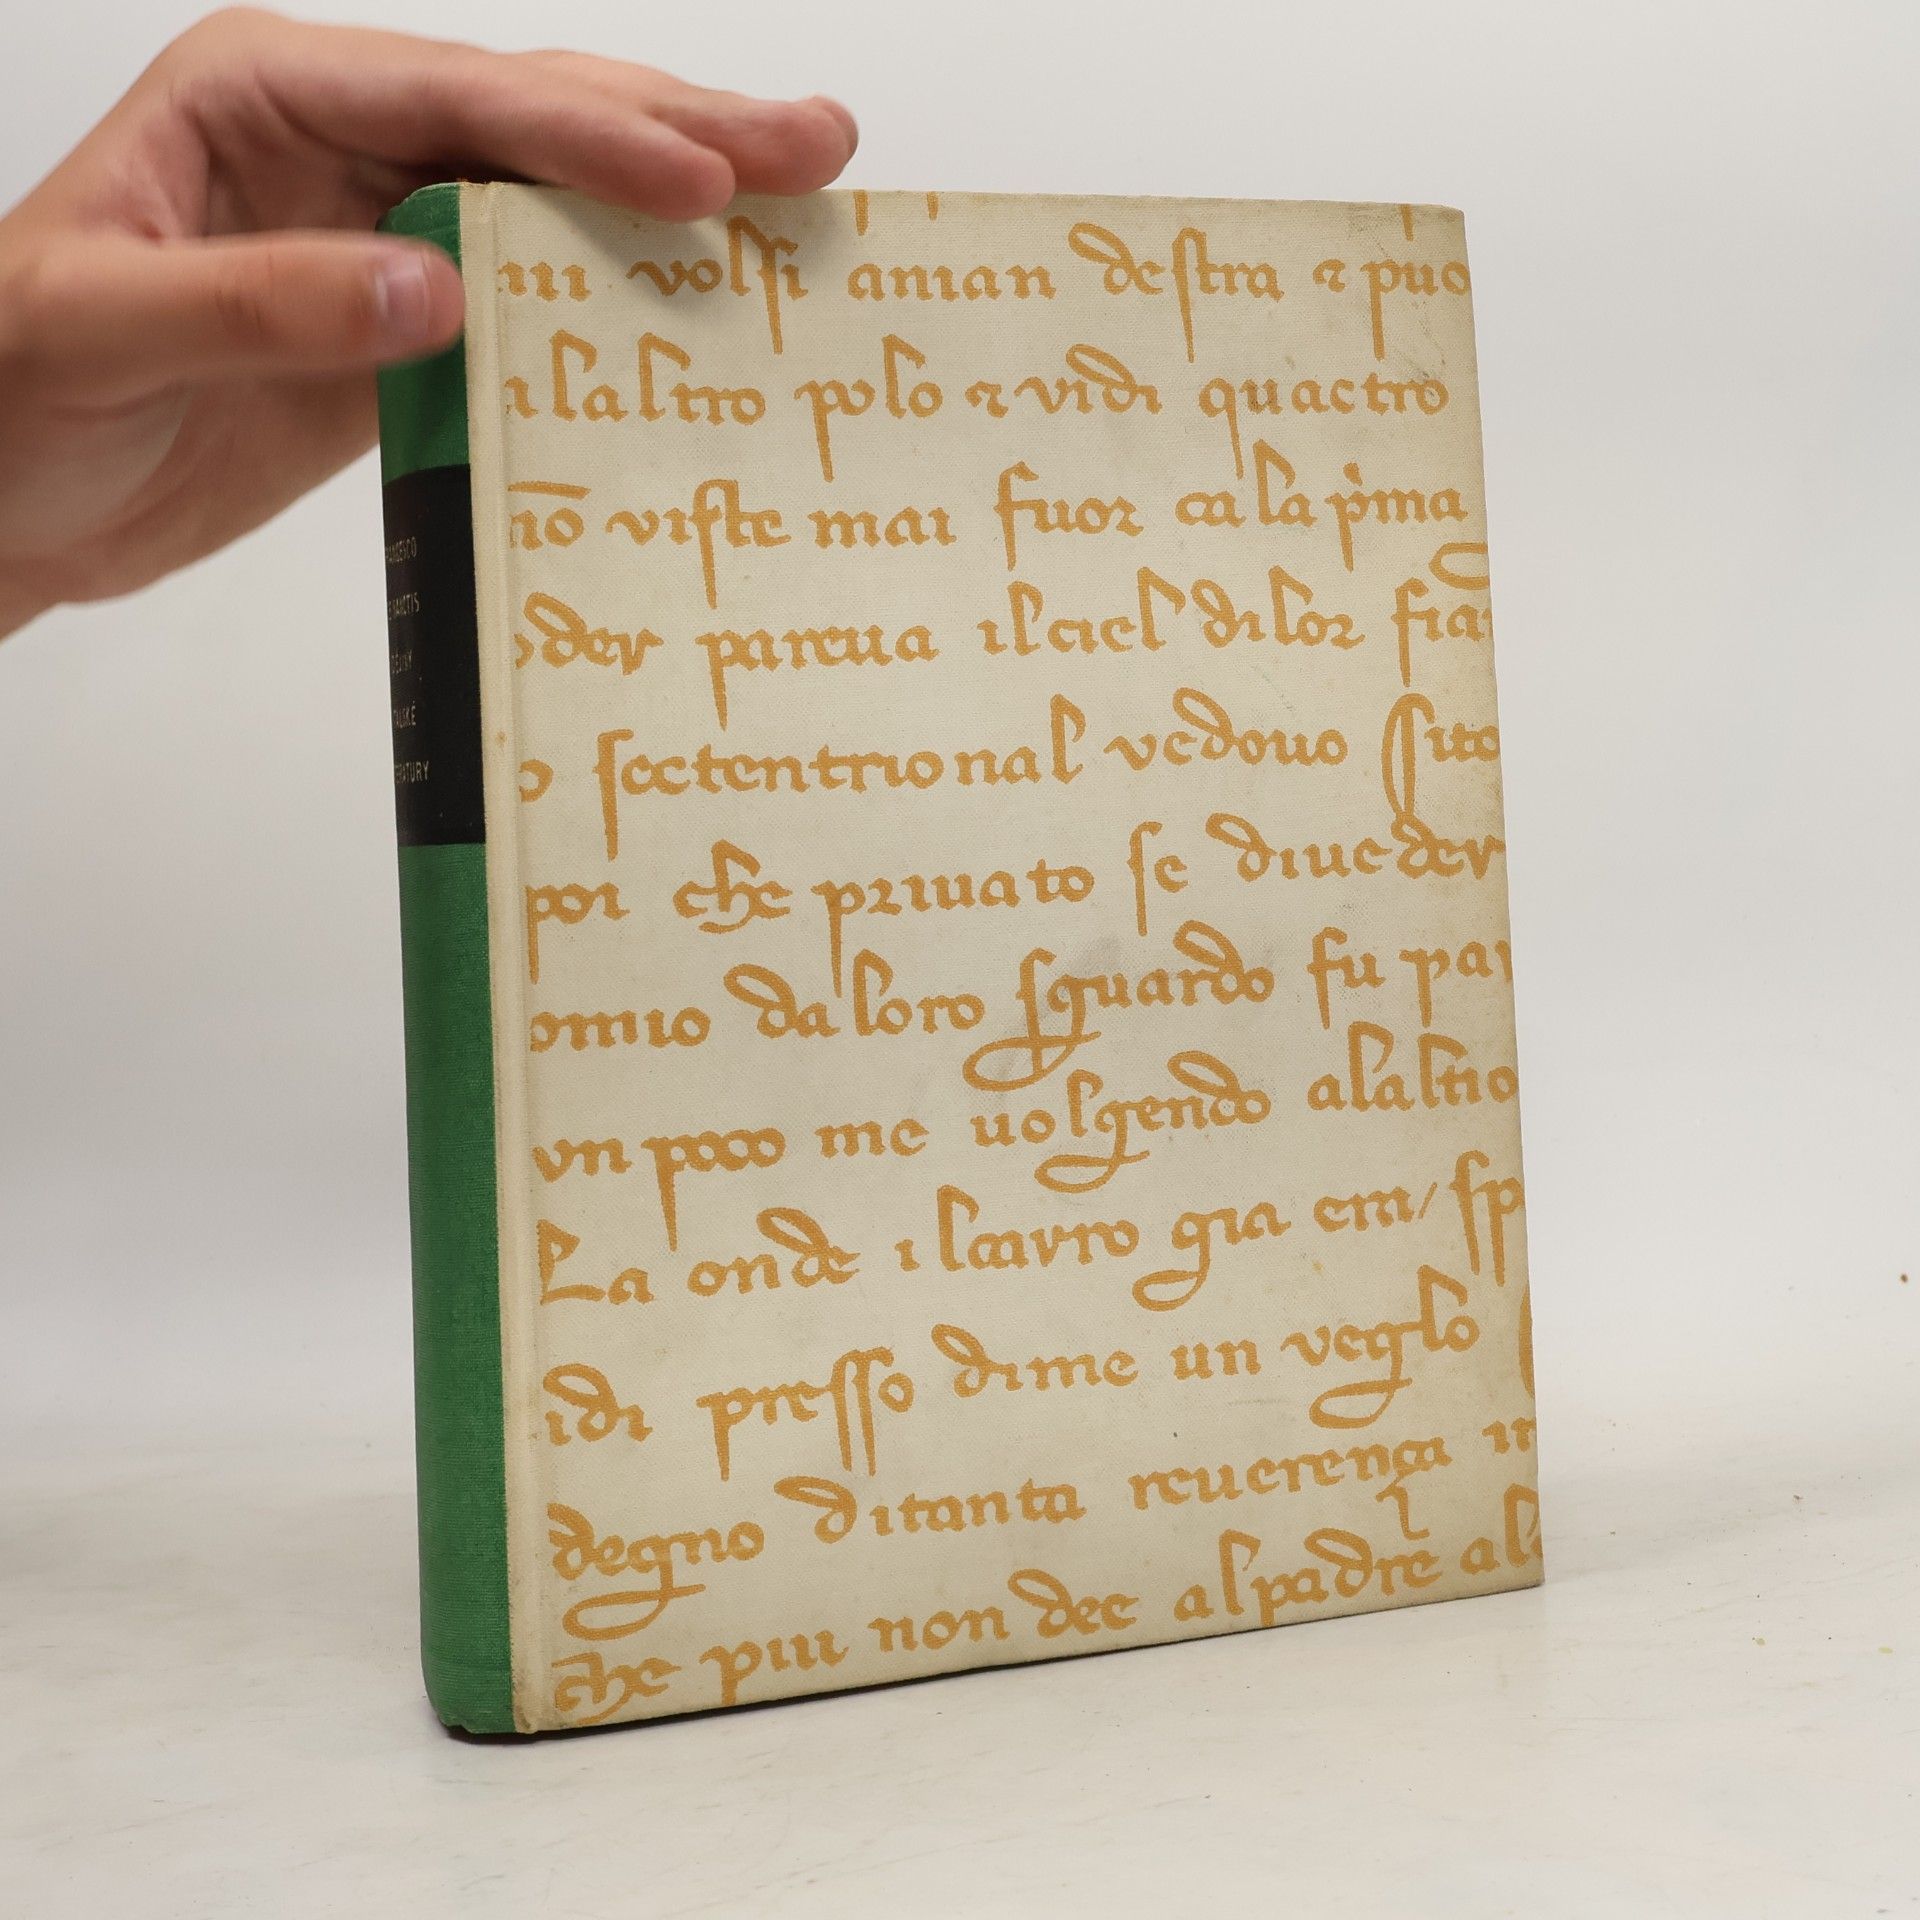 ANCESCO
SANCTIS
DĚJINY
TALSKÉ
ERATURY
volsi aman destra ⁊ puo
laltro polo ⁊ vidi quactro
nō viste mai fuor ca la pͥma
oder pareua ilciel dilor fia
o sectentrional vedouo sito
poi che priuato se diueder
omio da loro sguardo fu par
vn poco me uolgendo alaltro
La onde ilcarro gia era/ sp
idi presso dime un veglo
degno ditanta reuerença in
che piu non dee alpadre al